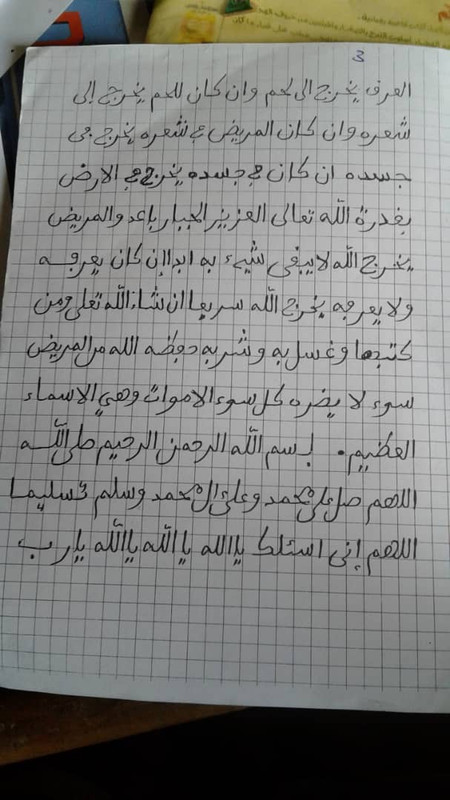 3
العرف يخرج الى لحم وان كان للحم يخرج إلى
شعره وان كان المريض في شعره يخرج في
جسده ان كان في جسده يخرج في الارض
بفدرة الله تعالى العزيز الجبار باعد والمريض
يخرج الله لا يبفى شيء به ابدا إن كان يعرفه
ولا يعرفه يخرج الله سريعا ان شاء الله تعلى ومن
كتبها وغسل به وشربه حفظه الله من المريض
سوء لا يضره كل سوء الاموات وهي الاسماء
العظيم. بسم الله الرحمن الرحيم صلى الله
اللهم صل على محمد وعلى ال محمد وسلم تسليما
اللهم إنى اسئلك يا الله يا الله يا الله يا رب